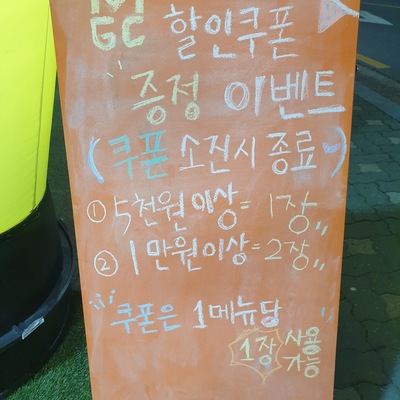 할인쿠폰
증정 이벤트
(쿠폰 소진시 종료)
① 5천원이상 = 1장,,
② 1만원이상 = 2장,,
쿠폰은 1메뉴당
1장 사용
가능